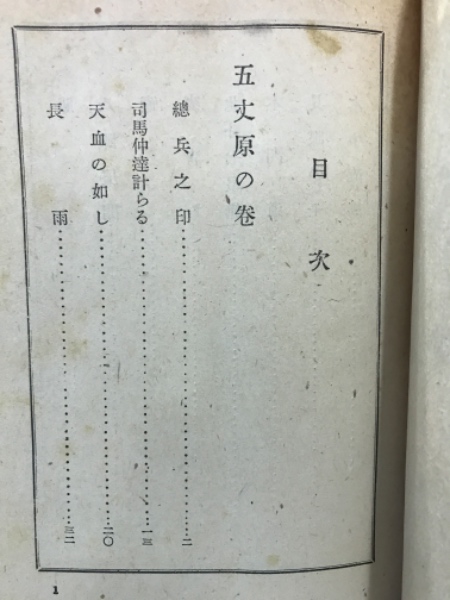 目次
五丈原の卷
總兵之印……………………二
司馬仲達計らる……………………一三
天血の如し……………………二〇
長雨……………………三二
1